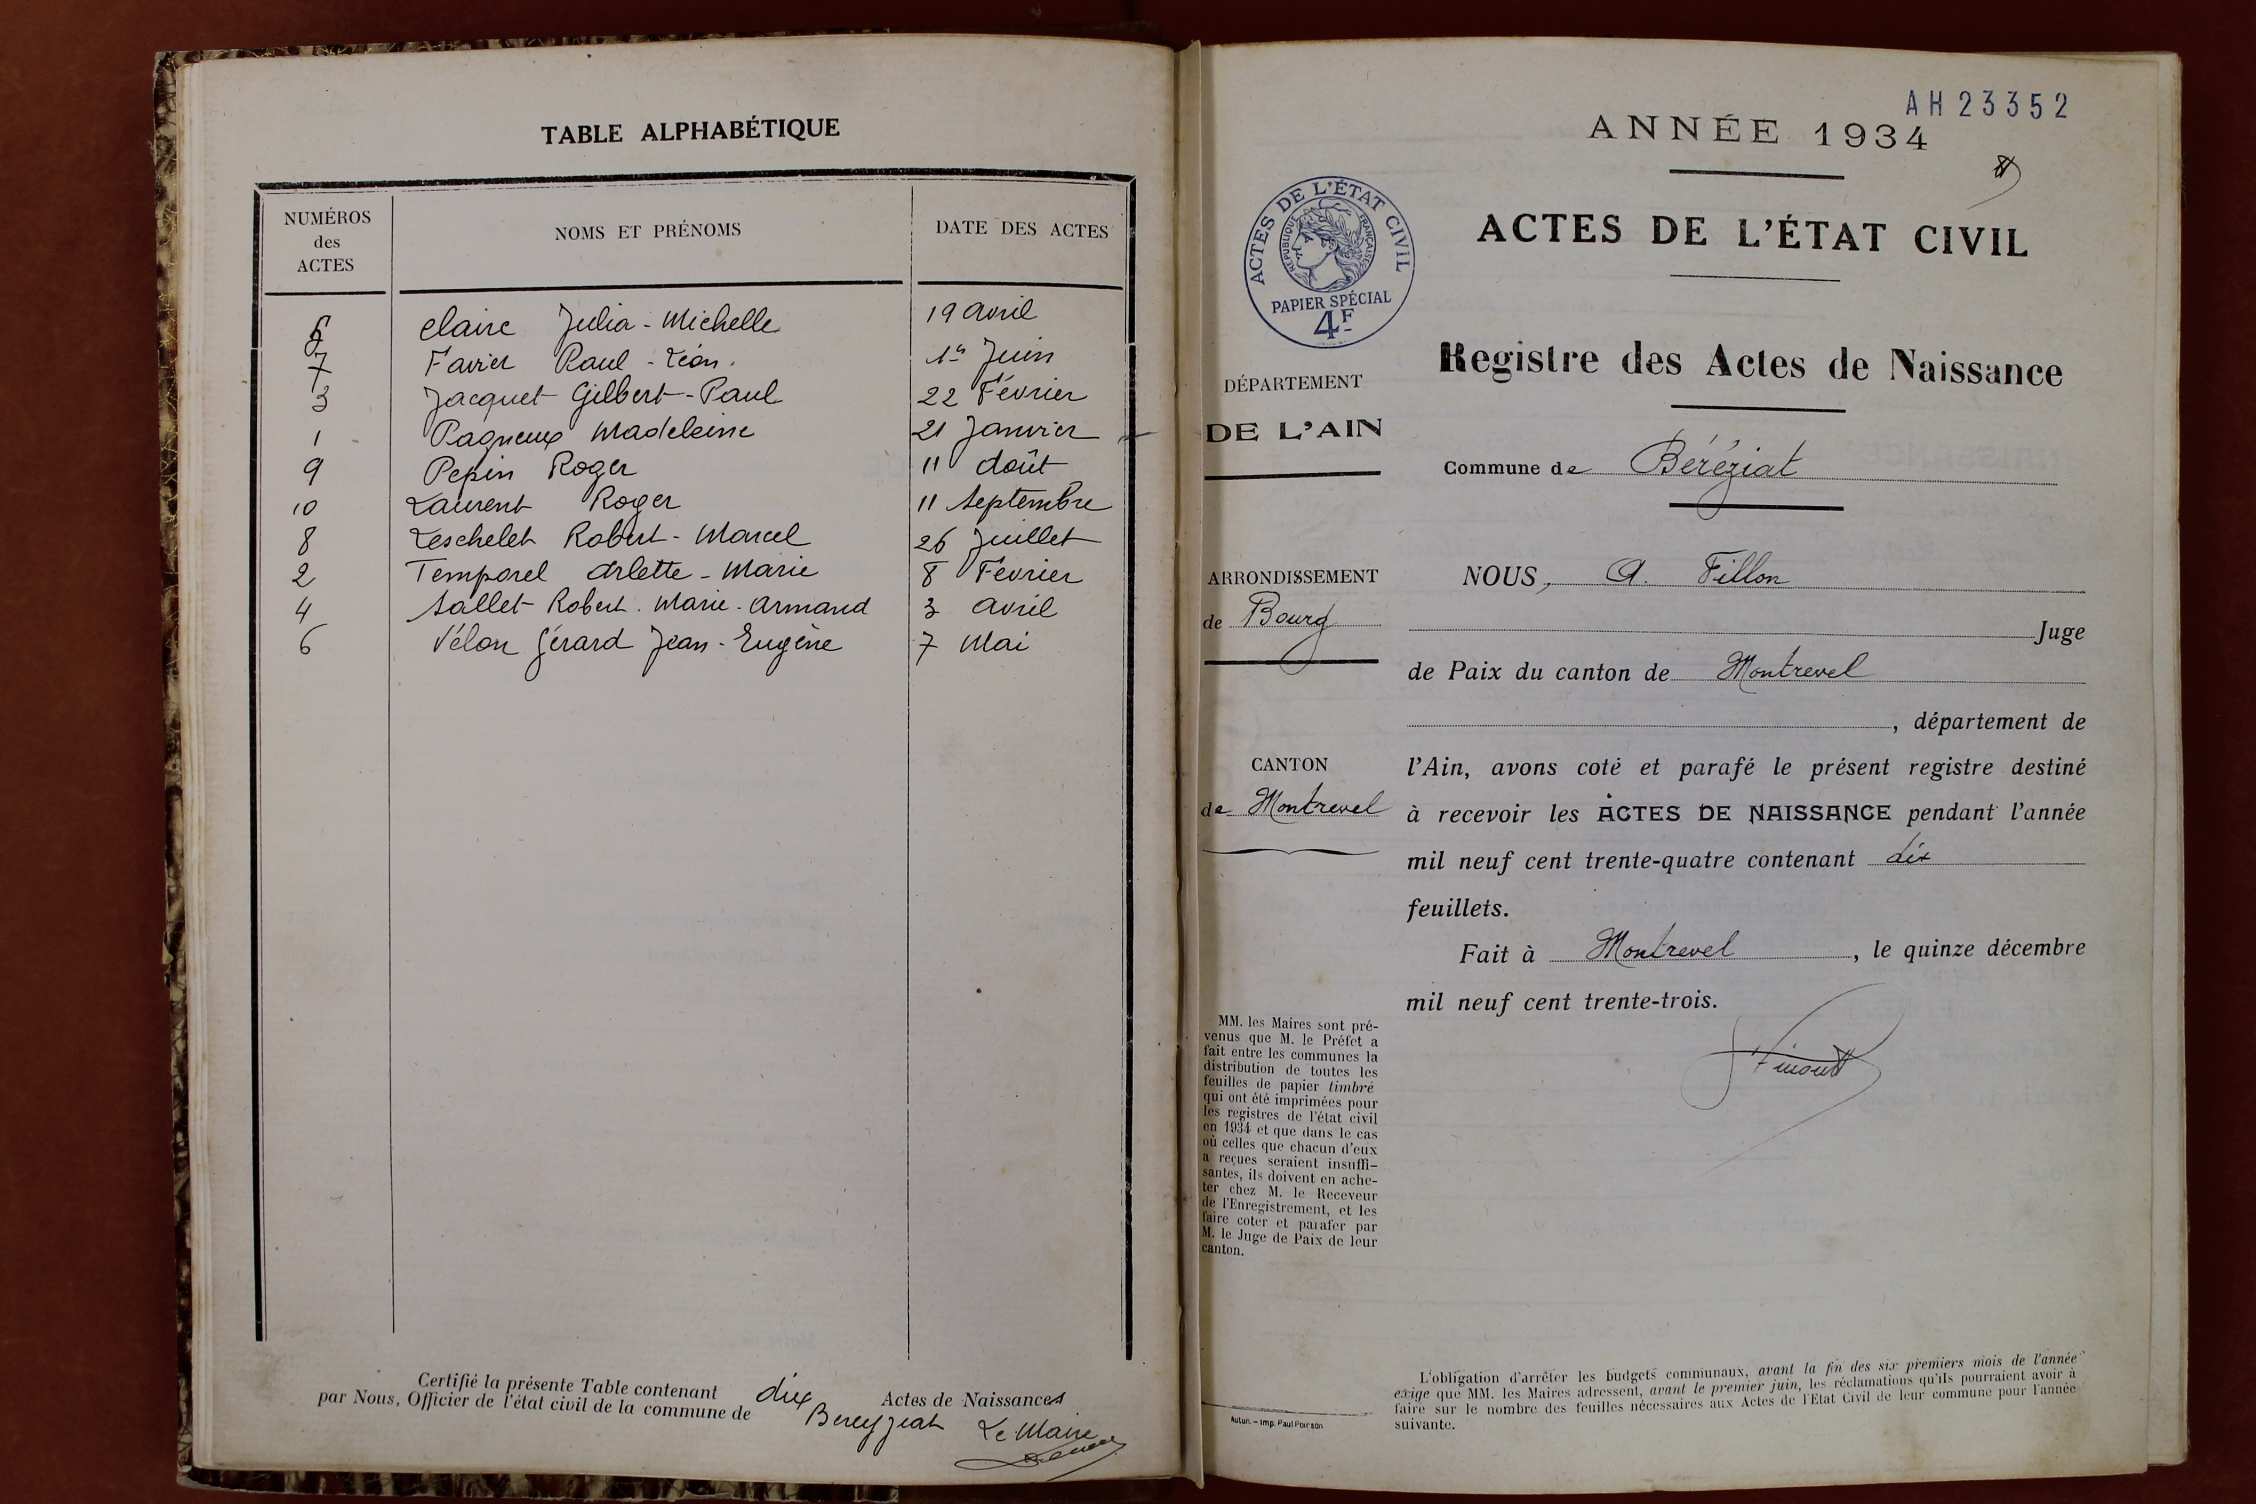 TABLE ALPHABÉTIQUE
NUMÉROS
des
ACTES
NOMS ET PRÉNOMS
DATE DES ACTES
5 Claire Julia - Michelle 19 avril
7 Favier Paul - Léon. 1er Juin
3 Jacquet Gilbert - Paul 22 Février
1 Pagneux Madeleine 21 Janvier
9 Pepin Roger 11 Août
10 Laurent Roger 11 Septembre
8 Leschelet Robert - Marcel 26 Juillet
2 Temporel Arlette - Marie 8 Février
4 Sallet Robert. Marie. Armand 3 avril
6 Vélon Gérard Jean - Eugène 7 Mai
Certifié la présente Table contenant dix Actes de Naissances
par Nous, Officier de l'état civil de la commune de Bereyziat Le Maire
AH23352
ANNÉE 1934
ACTES DE L'ÉTAT CIVIL
RÉPUBLIQUE FRANÇAISE
PAPIER SPÉCIAL
4F
ACTES DE L'ÉTAT CIVIL
Registre des Actes de Naissance
DÉPARTEMENT
DE L'AIN
Commune de Béréziat
ARRONDISSEMENT
de Bourg
CANTON
de Montrevel
NOUS, A. Fillon
Juge
de Paix du canton de Montrevel
, département de
l'Ain, avons coté et parafé le présent registre destiné
à recevoir les ACTES DE NAISSANCE pendant l'année
mil neuf cent trente-quatre contenant dix
feuillets.
Fait à Montrevel, le quinze décembre
mil neuf cent trente-trois.
MM. les Maires sont pré-
venus que M. le Préfet a
fait entre les communes la
distribution de toutes les
feuilles de papier timbré
qui ont été imprimées pour
les registres de l'état civil
en 1934 et que dans le cas
où celles que chacun d'eux
a reçues seraient insuffi-
santes, ils doivent en ache-
ter chez M. le Receveur
de l'Enregistrement, et les
faire coter et parafer par
M. le Juge de Paix de leur
canton.
Autun. – Imp. Paul Poirson
L'obligation d'arrêter les budgets communaux, avant la fin des six premiers mois de l'année
exige que MM. les Maires adressent, avant le premier juin, les réclamations qu'ils pourraient avoir à
faire sur le nombre des feuilles nécessaires aux Actes de l'Etat Civil de leur commune pour l'année
suivante.